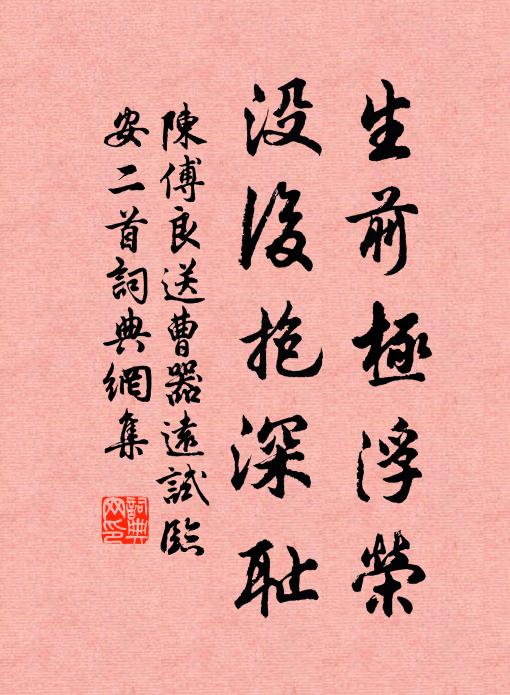 生前極浮榮
没後抱深恥
陳傅良送曹器遠試臨
安二首詞典網集
詞典
网印